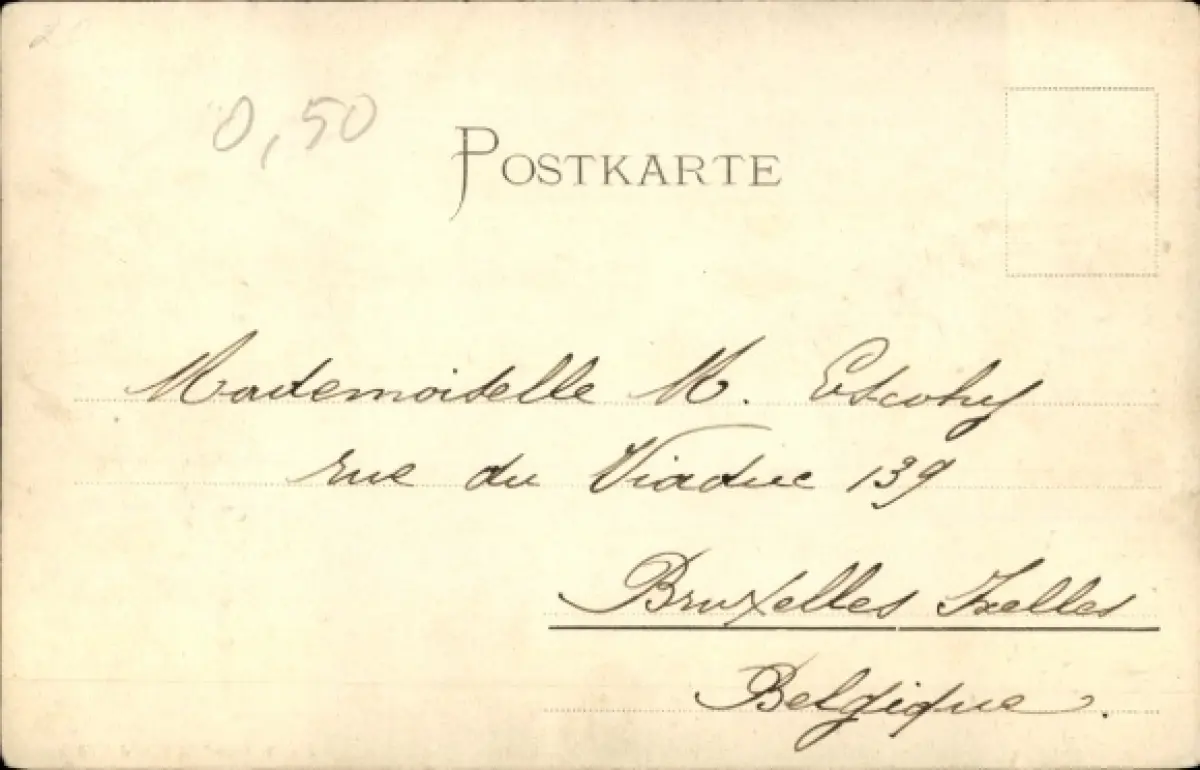 0,50
POSTKARTE
Mademoiselle M. Escohy
rue du Viaduc 139
Bruxelles Ixelles
Belgique.